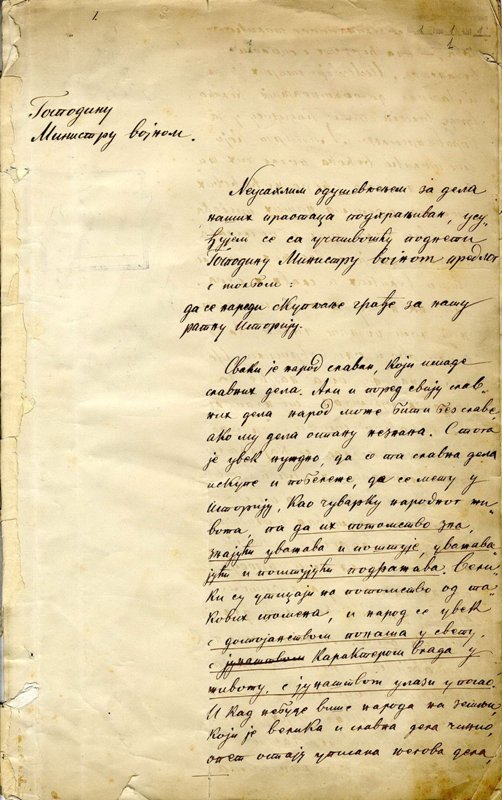 1.
Господину
Министру војном.
Неусахлим одушевљењем за дела
наших праотаца подхрањиван, усу-
ђујем се са учтивошћу поднети
Господину Министру војном предлог
с молбом:
да се нареди скупљање грађе за нашу
ратну Историју.
Сваки је народ славан, који имаде
славних дела. Али и поред свију слав-
них дела народ може бити без славе,
ако му дела остану незнана. С тога
је увек нуждно, да се та славна дела
искупе и побележе, да се мету у
Историју, као чуварку народног жи-
вота, та да их потомство зна,
знајући уважава и поштује, уважава-
јући и поштујући подражава. Вели-
ки су утицаји на потомство од та-
кових спомена, и народ се увек
с достојанством понаша у свету,
с јунаштвом карактером влада у
животу, с јунаштвом улази у погао.
И кад небуде више народа на земљи
који је велика и славна дела чинио,
опет остају уписана његова дела,